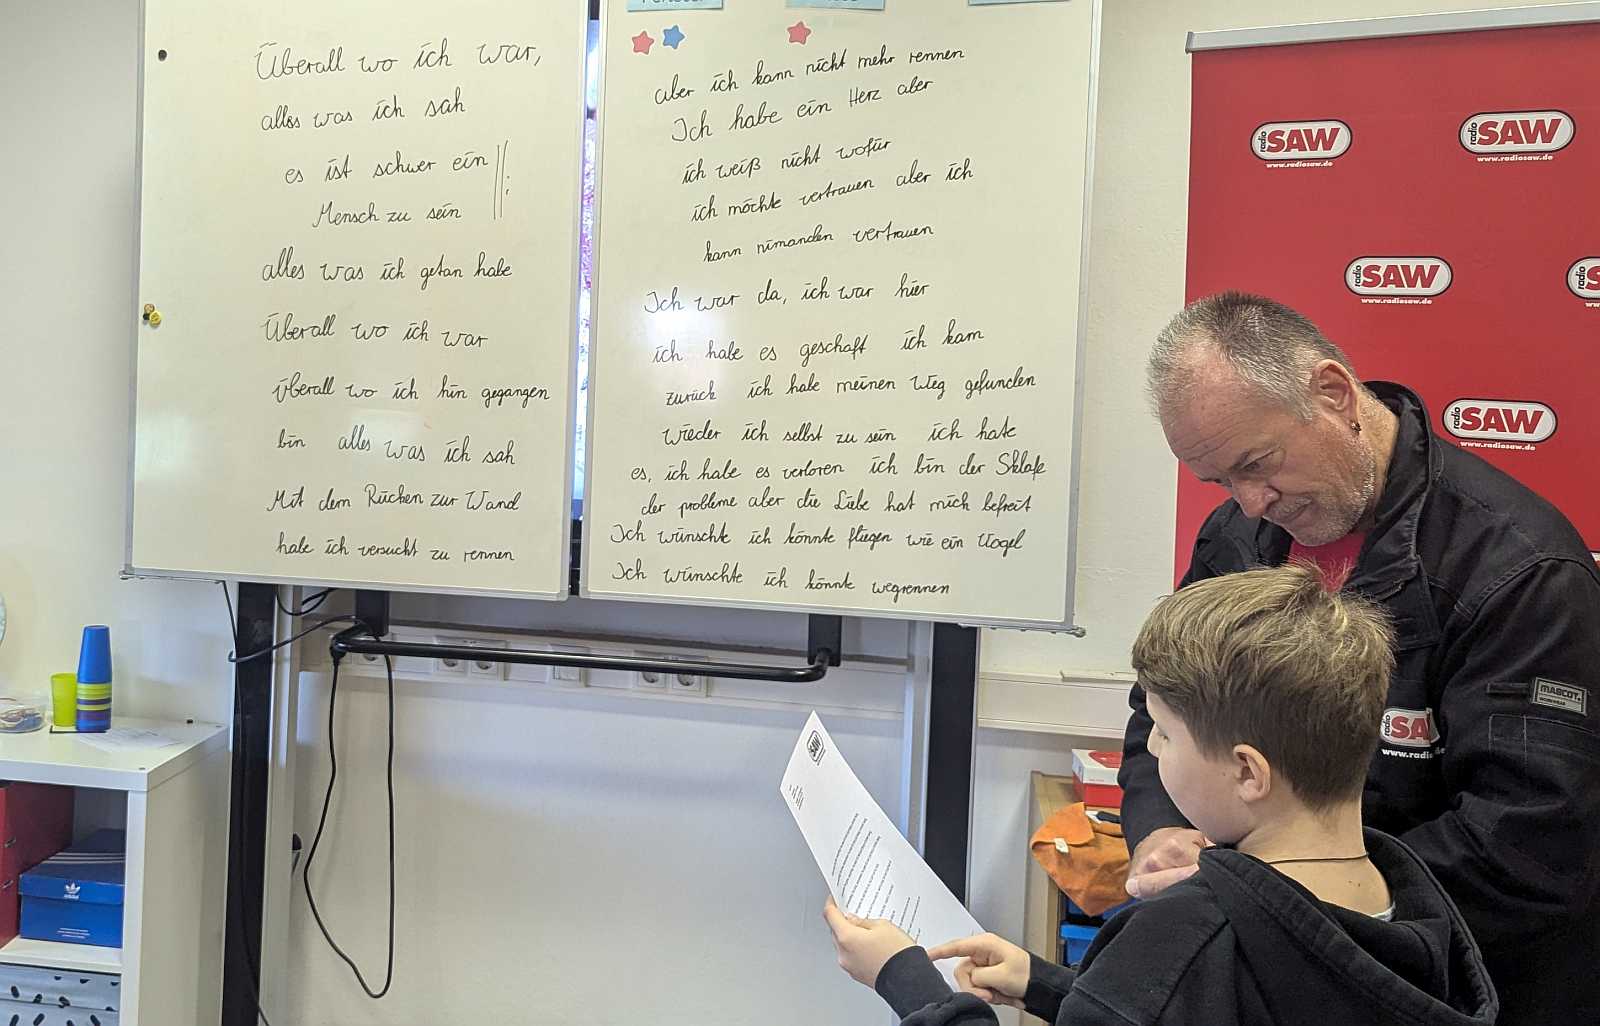 Überall wo ich war,
alles was ich sah
es ist schwer ein
Mensch zu sein
alles was ich getan habe
Überall wo ich war
Überall wo ich hin gegangen
bin alles was ich sah
Mit dem Rücken zur Wand
habe ich versucht zu rennen
aber ich kann nicht mehr rennen
Ich habe ein Herz aber
ich weiß nicht wofür
ich möchte vertrauen aber ich
kann nimanden vertrauen
Ich war da, ich war hier
ich habe es geschaft ich kam
zurück ich habe meinen Weg gefunden
wieder ich selbst zu sein ich hate
es, ich habe es verloren ich bin der Sklafe
der probleme aber die Liebe hat mich befreit
Ich wünschte ich könnte fliegen wie ein Vogel
Ich wünschte ich könnte wegrennen
radio SAW
www.radiosaw.de
radio SAW
www.radiosaw.de
radio SAW
www.radiosaw.de
radio S
ww
radio SAW
www.radiosaw.de
MASCOT
radio SA
www.radio de
SAW
adidas